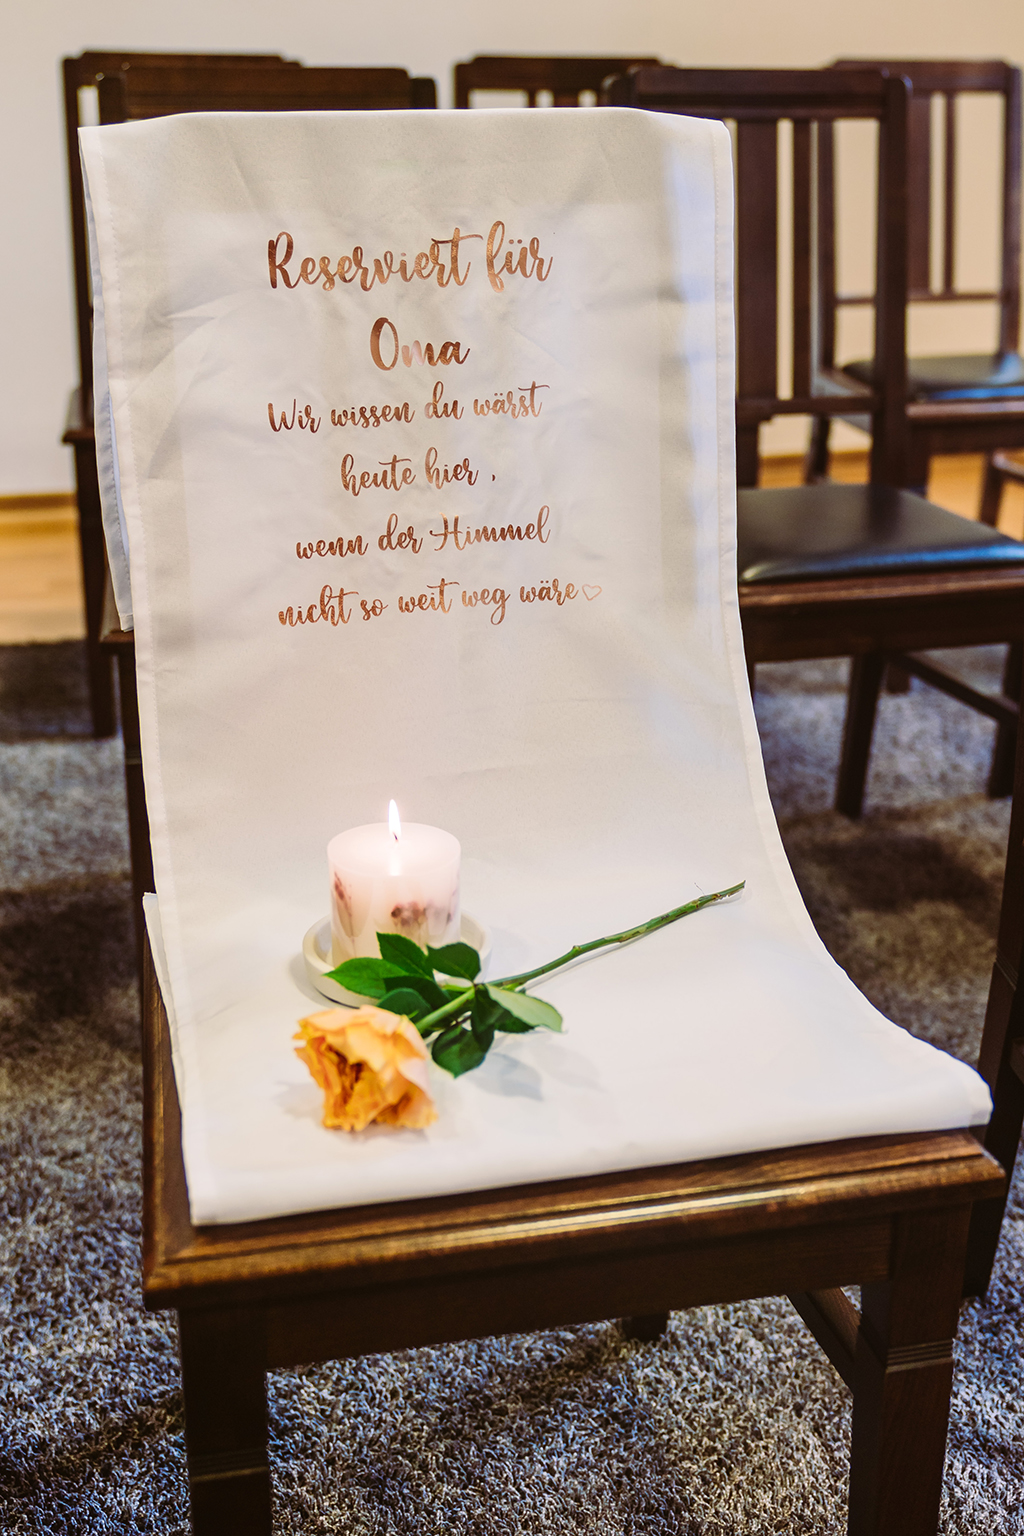 Reserviert für
Oma
Wir wissen du wärst
heute hier ,
wenn der Himmel
nicht so weit weg wäre♡